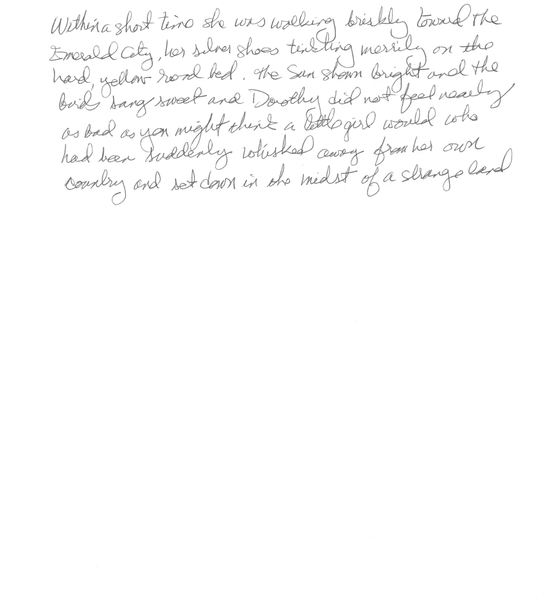 Within a short time she was walking briskly toward the
Emerald City, her silver shoes tinkling merrily on the
hard, yellow road bed. The Sun shown bright and the
birds sang sweet and Dorothy did not feel nearly
as bad as you might think a little girl would who
had been suddenly whisked away from her own
country and set down in the midst of a strange land